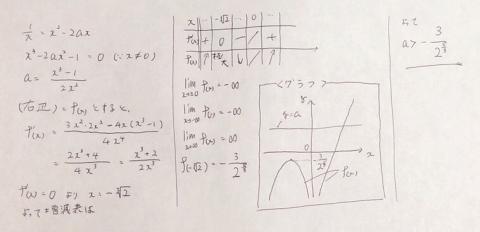 1/x = x² - 2ax
x³ - 2ax² - 1 = 0 (∵ x ≠ 0)
a = (x³ - 1)/(2x²)
(右辺) = f(x) とすると、
f'(x) = (3x²・2x² - 4x(x³ - 1))/(4x⁴)
= (2x³ + 4)/(4x³) = (x³ + 2)/(2x³)
f'(x) = 0 より x = -∛2
よって増減表は
x … -∛2 … 0 …
f'(x) + 0 - / +
f(x) ↗ 極大 ↘ / ↗
lim x→0 f(x) = -∞
lim x→-∞ f(x) = -∞
lim x→∞ f(x) = ∞
f(-∛2) = -3/2^(5/3)
<グラフ>
y
y=a
0
x
-3/2^(5/3)
f(x)
よって
a > -3/2^(5/3)